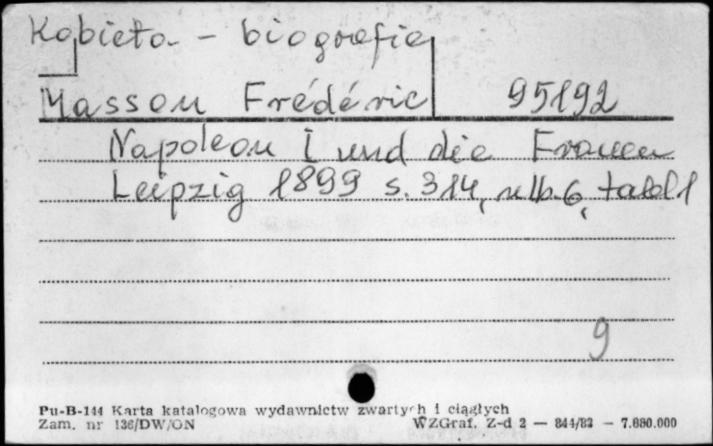 Kobieta - biografie
Masson Frédéric 95192
Napoleon I und die Frauen
Leipzig 1899 s. 314, nlb. 6, tabl 1
9
Pu-B-144 Karta katalogowa wydawnictw zwartych i ciągłych
Zam. nr 136/DW/ON WZGraf. Z-d 2 — 844/83 — 7.080.000